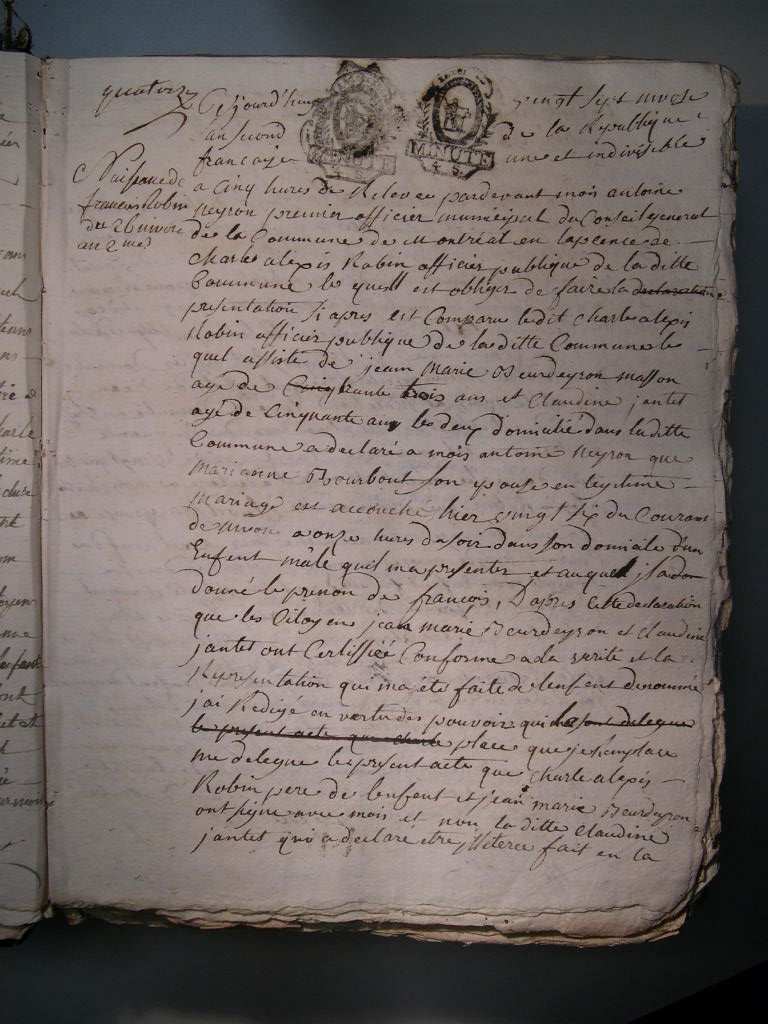 quatorze
Cejourd'huy vingt sept nivose
L'an second de la Republique
francaise une et indivisible
MINUTE
4. S.
MINUTE
4. S.
Naissance de
francois Robin
du 26 nivose
an 2me
a Cinq hures de Relevee pardevant mois antoine
neyron premier officier municipal du Conseil general
de la Commune de Montréal en lapcence de
Charle alexis Robin officier publique de la ditte
Commune le quell est obliger de faire la declaration
presentation si apres est Comparu ledit Charle alexis
Robin officier publique de la ditte Commune le
quel assiste de jeam Marie Beurdeyron masson
age de Cinquante trois ans et Claudine jantet
agé de Cinquante ans les deux domicilié dans la ditte
Commune a declaré a mois antoine neyron que
marianne Bourbout son epouse en legitime
mariage est accouché hier vingt six du Courant
de nivose a onze hures du soir dans son domicile d'un
Enfent mâle quil ma presenter et auquel il a
donné le prenon de françois, D'apres Cette declaration
que les Citoyens jean marie Beurdeyron et Claudine
jantet ont Certiffiéé Conforme a la verité et la
Representation qui ma été faite de lenfent denommée
j'ai Redige en vertu des pouvoir qui me sont delegue
le present acte que charle place que je remplace
me delegue le present acte que Charle alexis
Robin pere de lenfent et jean marie Beurdeyron
ont signe avec mois et non la ditte Claudine
jantet qui a declaré etre illeterce fait en la